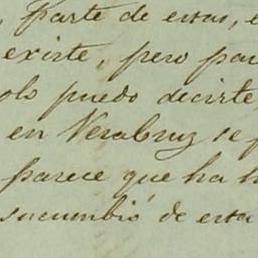 , parte de estas, e
existe, pero par
olo puedo decirte
en VeraCruz se p
parece que ha t
sucumbió de esta